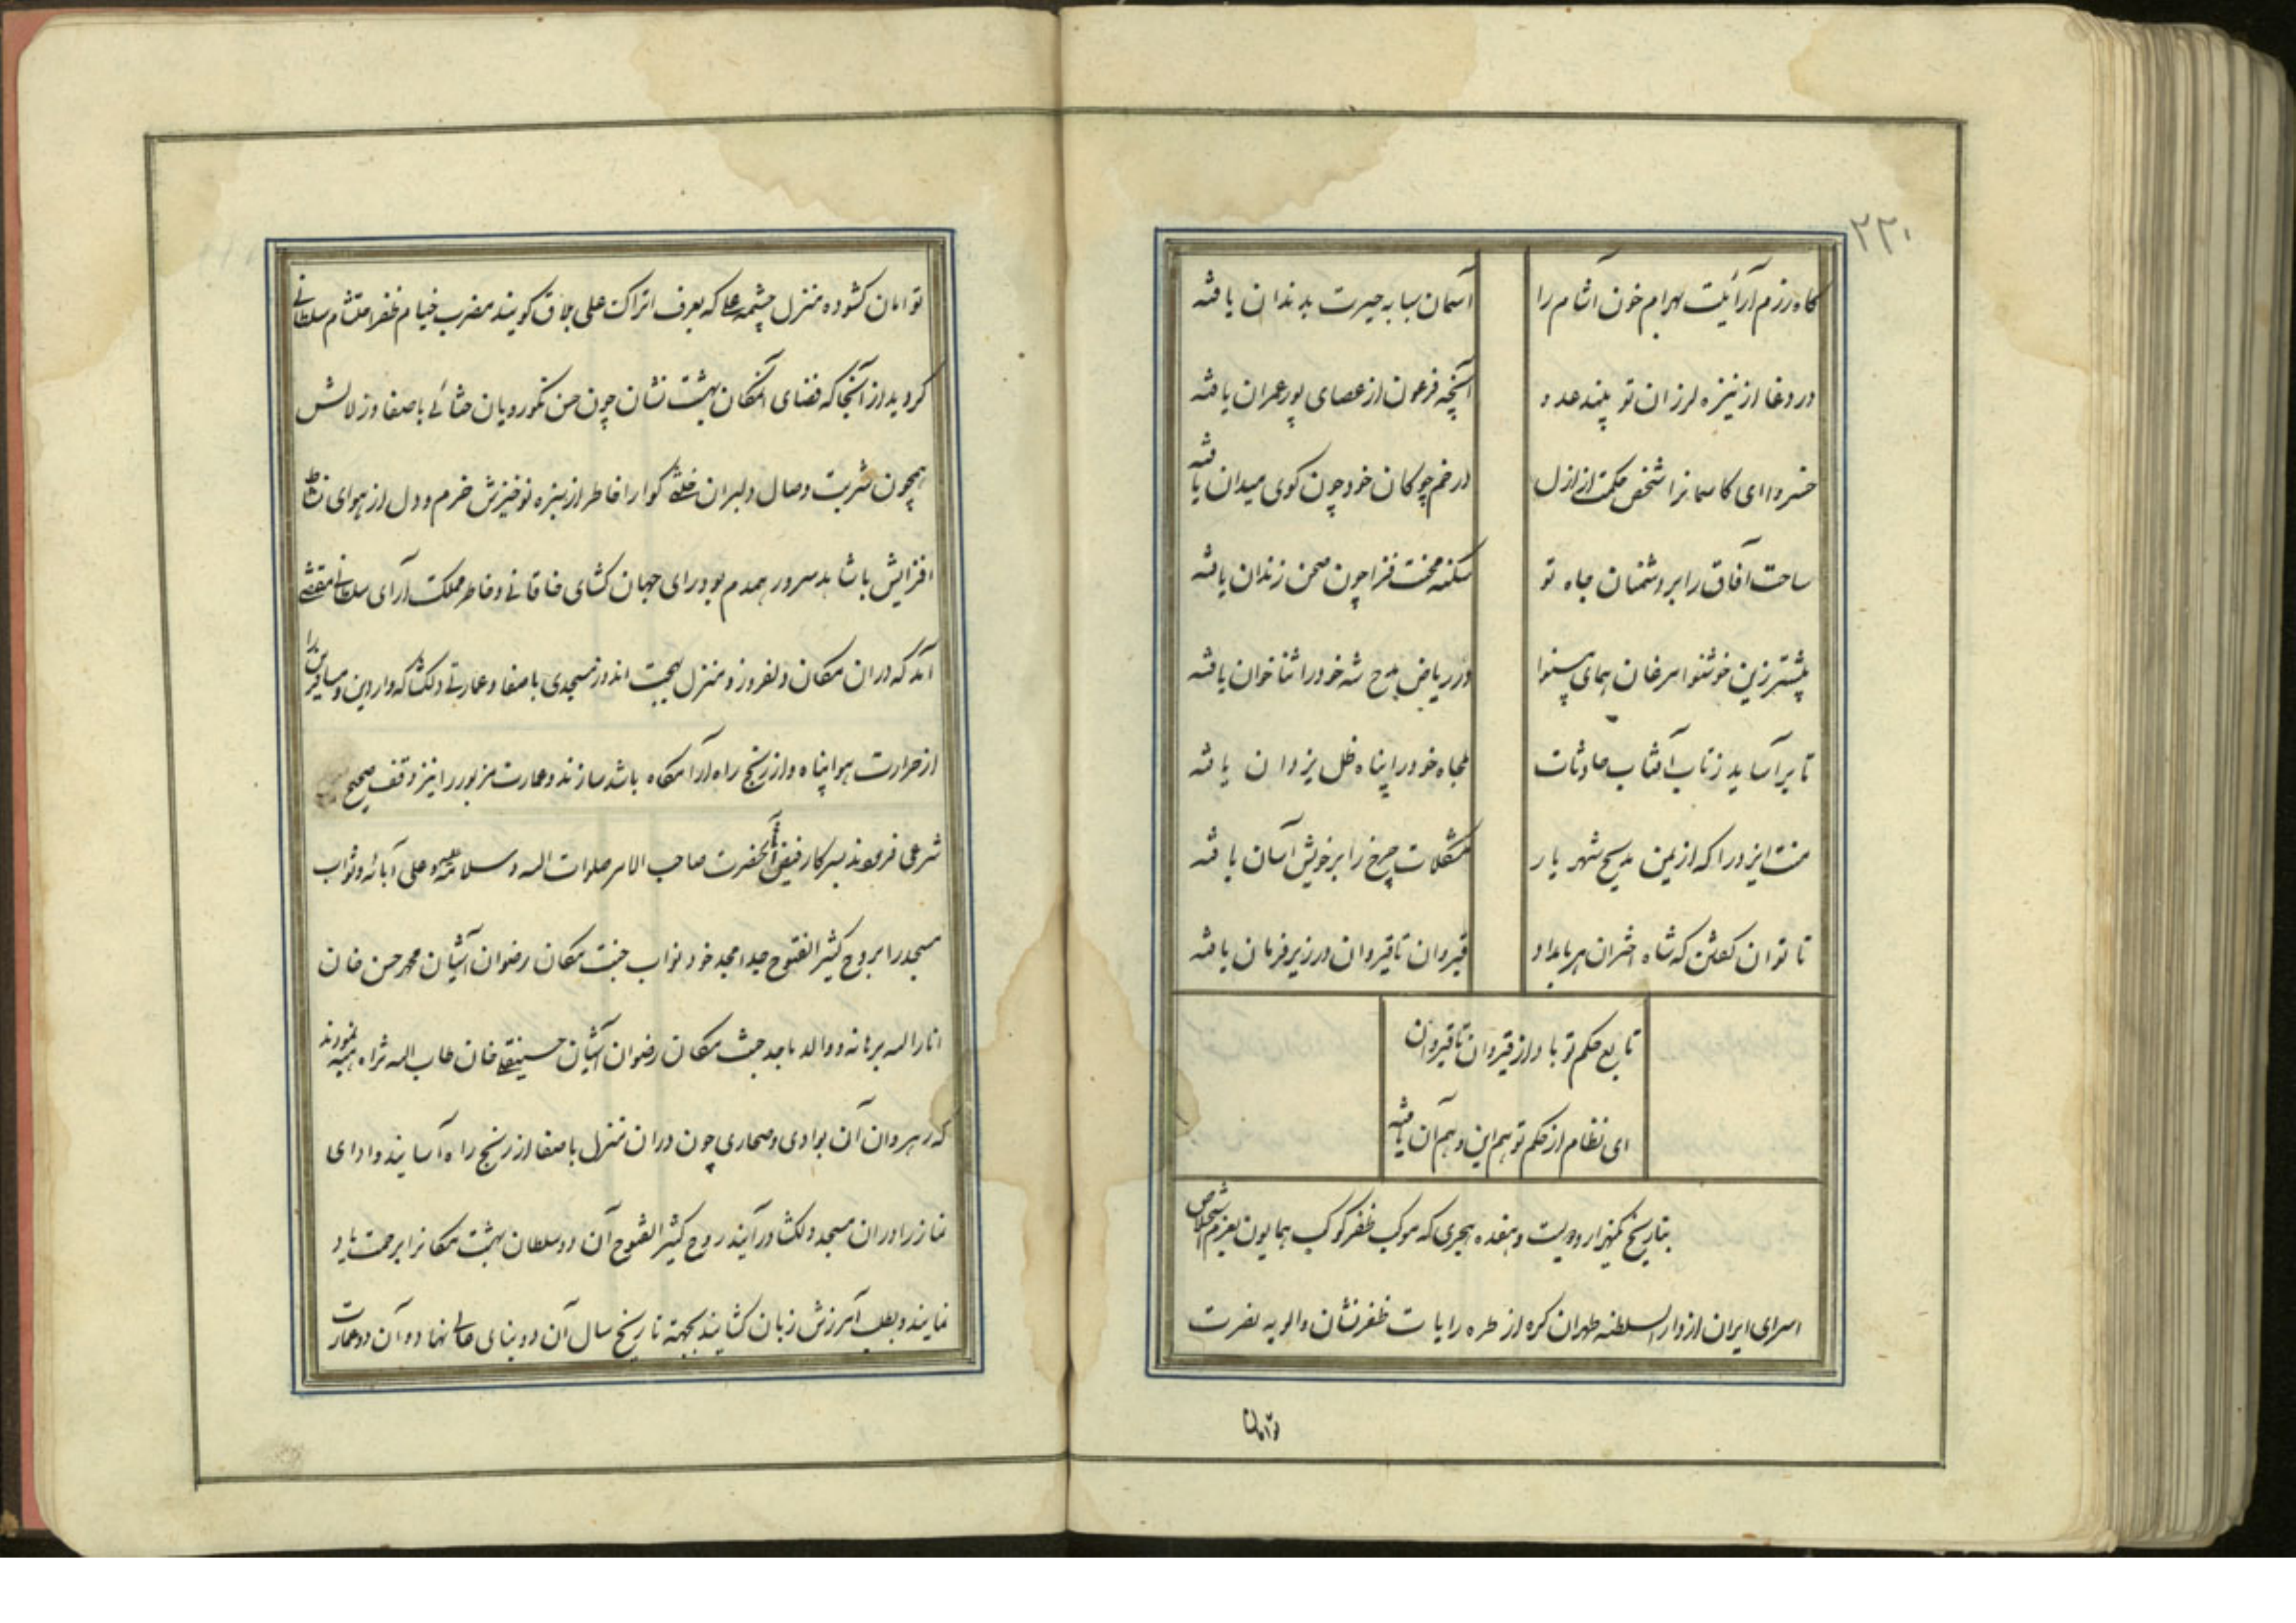 ۲۲۰
گاه رزم آرائیت بهرام خون آشام را
آسمان سبابه حیرت بدندان یافته
در وغا از نیزه لرزان تو بیند عدو
آنچه فرعون از عصای پور عمران یافته
خسروا ای کاسمانرا شخص حکمت از ازل
در خم چوکان خود چون کوی میدان یافته
ساحت آفاق را بر دشمنان جاه تو
محنت فزا چون صحن زندان یافته
پیشتر زین خوشنوا مرغان همای بینوا
در ریاض مدح شه خود را ثنا خوان یافته
تا بر آساید ز تاب آفتاب حادثات
ملجاء خود را پناه ظل یزدان یافته
منت ایزد را که از یمن مدیح شهریار
مشکلات چرخ را بر خویش آسان یافته
تا توان کفتن که شاه اختران هر بامداد
قیروان تا قیروان در زیر فرمان یافته
تابع حکم تو باد از قیروان تا قیروان
ای نظام از حکم تو هم این و هم آن یافته
بتاریخ یکهزار و دویست و هفده هجری که موکب ظفر کوکب همایون بعزم استخلاص
اسرای ایران از دار السلطنه طهران کره از طره رایات ظفر نشان و الویه نصرت
توامان
توامان کشوده منزل چشمه علی که بعرف اتراک علی بلاق کویند مضرب خیام ظفر احتشام سلطانی
کردید از آنجا که فضای آنمکان بهشت نشان چون حسن نکورویان ختائی با صفا و زلالش
همچون شربت وصال دلبران خلخی کوارا خاطر از سبزه نوخیزش خرم و دل از هوای نشاط
افزایش با شاهد سرور همدم بود رای جهان کشای خاقانی و خاطر مملکت آرای سلطانی مقتضی
آمد که در ان مکان دلفروز و منزل بهجت اندوز مسجدی با صفا و عمارتی دلکشا که واردین و مسافرین را
از حرارت هوا پناه و از رنج راه آرامکاه باشد سازند و عمارت مزبور را نیز وقف صحیح
شرعی فرمودند بسرکار فیض آثار حضرت صاحب الامر صلوات الله و سلامه علیه و علی آبائه و ثواب
مسجد را بروح کثیر الفتوح جد امجد خود نواب جنت مکان رضوان آشیان محمد حسن خان
انار الله برهانه و والد ماجد جنت مکان رضوان آشیان حسینقلی خان طاب الله ثراه هبه نمودند
که رهروان آن بوادی و صحاری چون در ان منزل با صفا از رنج راه آسایند و ادای
نماز را در ان مسجد دلکشا در آیند روح کثیر الفتوح آن دو سلطان بهشت مکانرا برحمت یاد
نمایند و بطلب آمرزش زبان کشایند بجهته تاریخ سال آن دو بنای عالی نهاد و آن دو عمارت